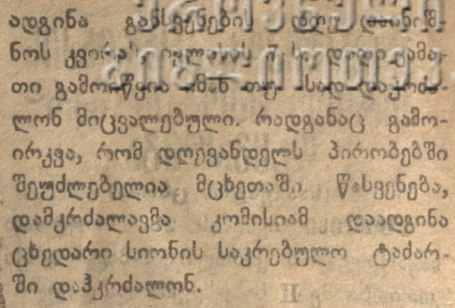 ადგინა გასვენების დღე დანიშ-
ნოს კვირა, ივლისს
თი გამოიწვია იმან თუ სად დაკრძა-
ლონ მიცვალებული. რადგანაც გამო-
ირკვა, რომ დღევანდელს პირობებში
შეუძლებელია მცხეთაში წასვენება,
დამკრძალავმა კომისიამ დაადგინა
ცხედარი სიონის საკრებულო ტაძარ-
ში დაჰკრძალონ.